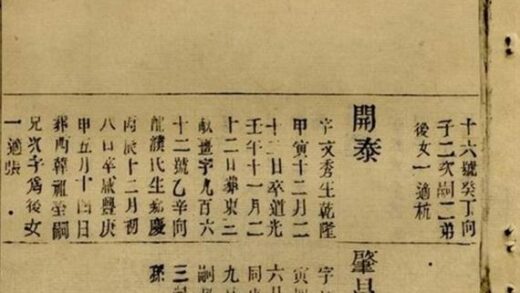 十六號癸丁向
子二次嗣二弟
後女一適杭
開泰
字文秀生乾隆
甲寅十二月二
十三日卒道光
壬午十一月二
十二日葬東二
畝盡字九百六
十二號乙辛向
濮氏生嘉慶
丙辰十二月初
八日卒咸豐庚
申五月十四日
葬西韓龍堂嗣
兄次子為後女
一適張
肇
字
寅
六
同
九
嗣
三
孫